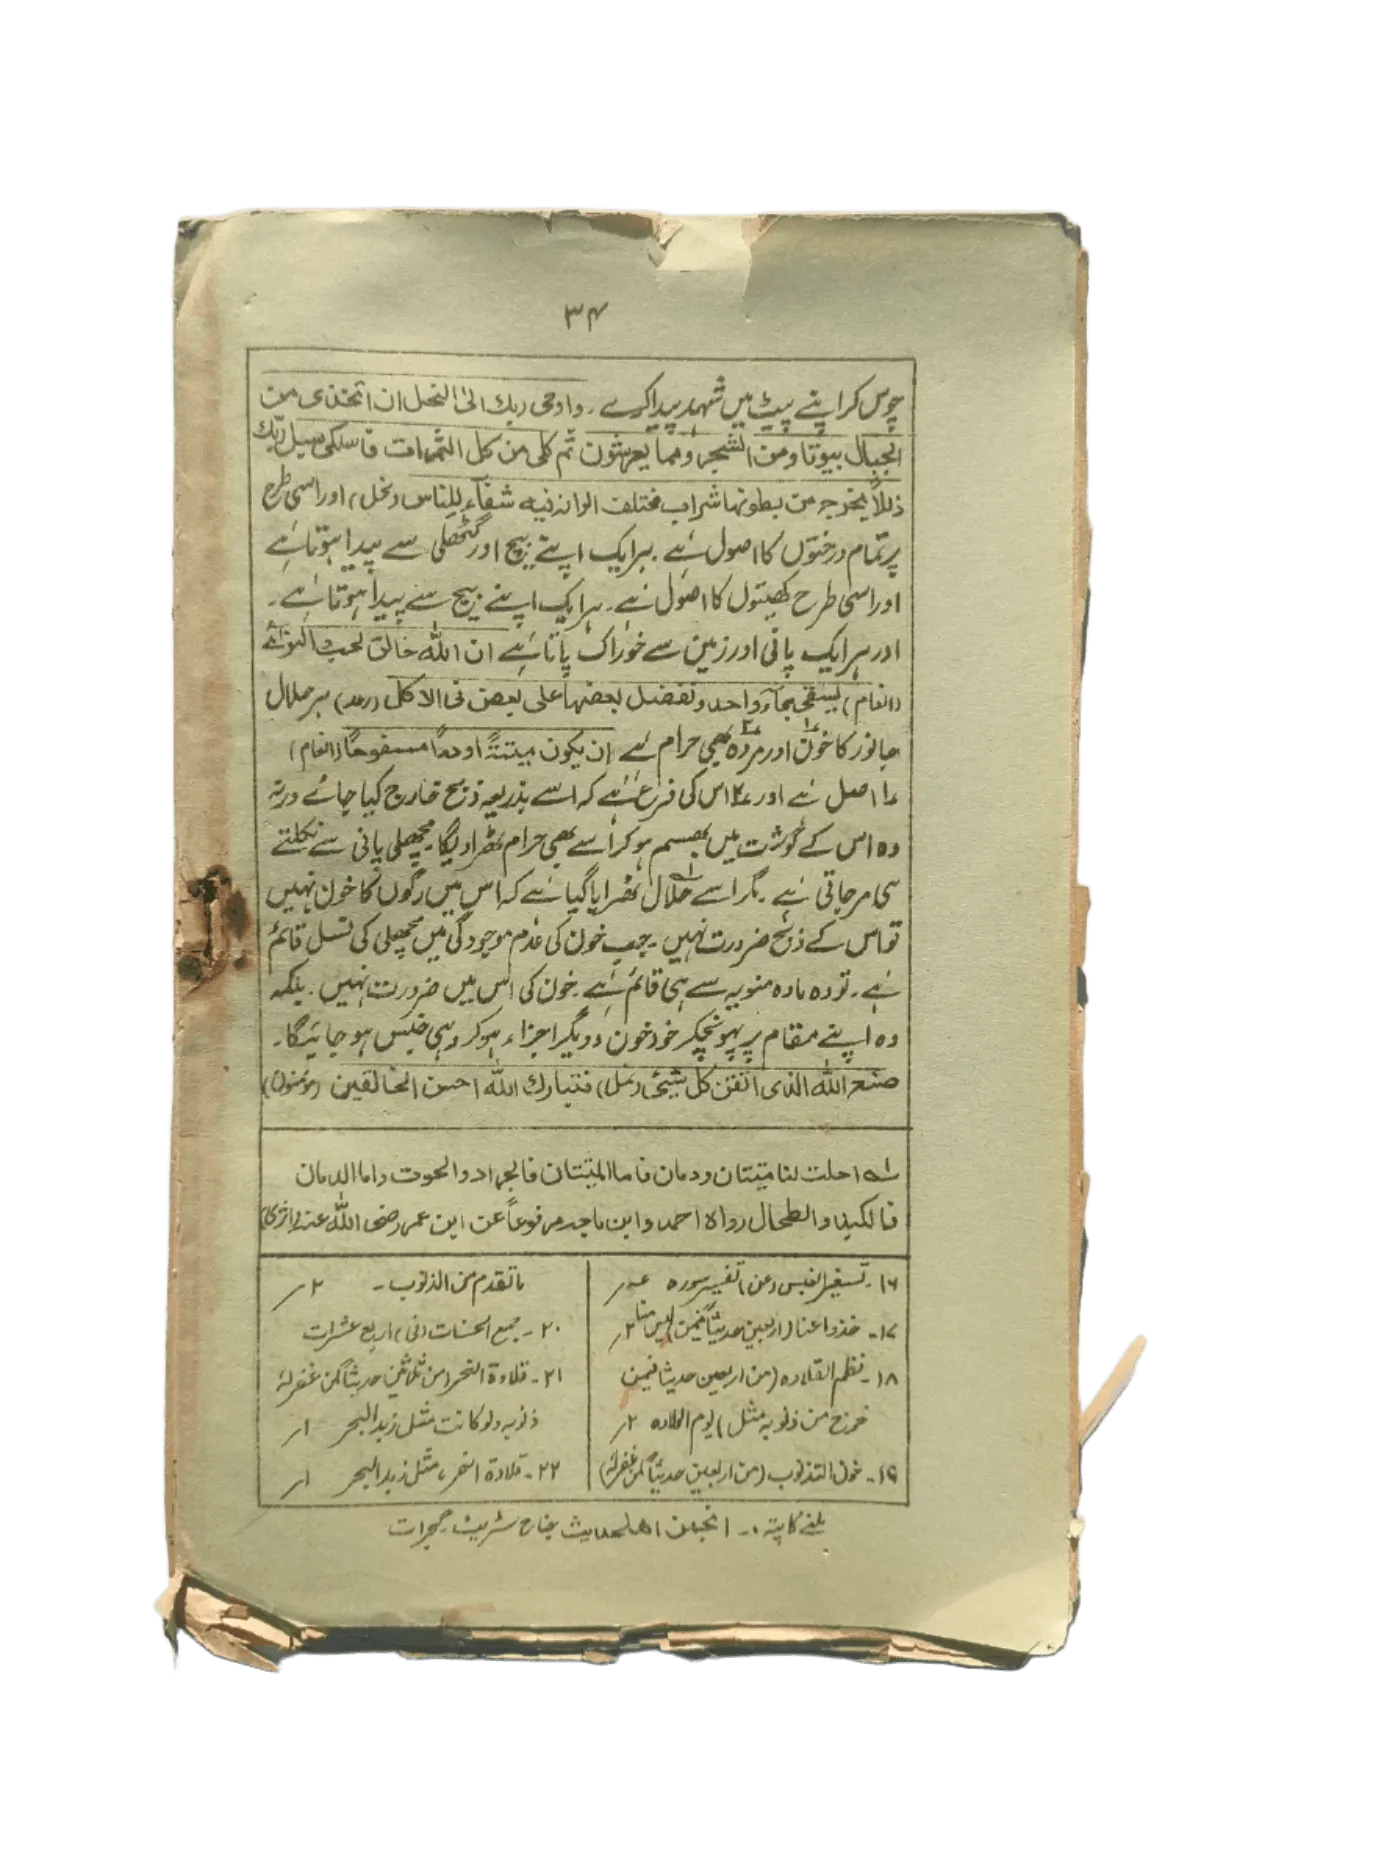 ۳۴
چوس کر اپنے پیٹ میں شہد پیدا کرے ۔ واوحی ربك الی النحل ان اتخذی من
الجبال بیوتا ومن الشجر ومما یعرشون ثم کلی من کل الثمرات فاسلکی سبل ربّك
ذللاً یخرج من بطونها شراب مختلف الوانه فیه شفاء للناس (نحل) اور اسی طرح
پر تمام درختوں کا اصول ہے ۔ ہر ایک اپنے بیج اور گٹھلی سے پیدا ہوتا ہے
اور اسی طرح کھیتوں کا اصول ہے ۔ ہر ایک اپنے بیج سے پیدا ہوتا ہے ۔
اور ہر ایک پانی اور زمین سے خوراک پاتا ہے ان اللّٰه خالق الحب والنوائے
(انعام) یسقی بماء واحد ونفضل بعضها علی بعض فی الاکل (رعد) ہر حلال
جانور کا خون ۱؎ اور مردہ ۲؎ بھی حرام ہے ان یکون میتتةً او دماً مسفوحاً (انعام)
۱؎ اصل ہے اور ۲؎ اس کی فرع ہے کہ اسے بذریعہ ذبح خارج کیا جائے ورنہ
وہ اس کے گوشت میں بھسم ہو کر اسے بھی حرام ٹھرا دیگا مچھلی پانی سے نکلتے
ہی مر جاتی ہے ۔ مگر اسے حلال ۱؎ ٹھرایا گیا ہے کہ اس میں رگوں کا خون نہیں
تو اس کے ذبح ضرورت نہیں ۔ جب خون کی عدم موجودگی میں مچھلی کی نسل قائم
ہے ۔ تو وہ مادہ منویہ سے ہی قائم ہے ۔ خون کی اس میں ضرورت نہیں ۔ بلکہ
وہ اپنے مقام پر پہونچکر خود خون و دیگر اجزاء ہو کر وہی جنس ہو جائیگا ۔
صنع اللّٰه الذی اتقن کل شیئ (نمل) فتبارك اللّٰه احسن الخالقین (مؤمنون)
۱؎ احلت لنا میتتان ودمان فاما المیتتان فالجراد والحوت واما الدمان
فالکبد والطحال رواه احمد وابن ماجه مرفوعاً عن ابن عمر رضی اللّٰه عنه
۱۶ ۔ تسفیر العبس (عن) تفسیر سورہ
۱۷ ۔ خذوا عنا (اربعین حدیثاً فیمن) لیس منا ۲ر
۱۸ ۔ نظم القلادہ (من اربعین حدیثا فیمن
خرج من ذنوبہ مثل) یوم الولادہ ۲ر
۱۹ ۔ الذنوب (من اربعین حدیثاً لمن غفرلہ)
ما تقدم من الذنوب ۔ ۲ر
۲۰ ۔ جمع الحسنات (فی) اربع عشرات
۲۱ ۔ قلادة النحر (من ثلثین حدیثاً لمن غفرلہ
ذنوبہ ولو کانت مثل زبد البحر ۱ر
۲۲ ۔ قلادة النحر، مثل زبد البحر ۱ر
ملنے کا پتہ :۔ انجمن اھلحدیث جناح شریف گجرات